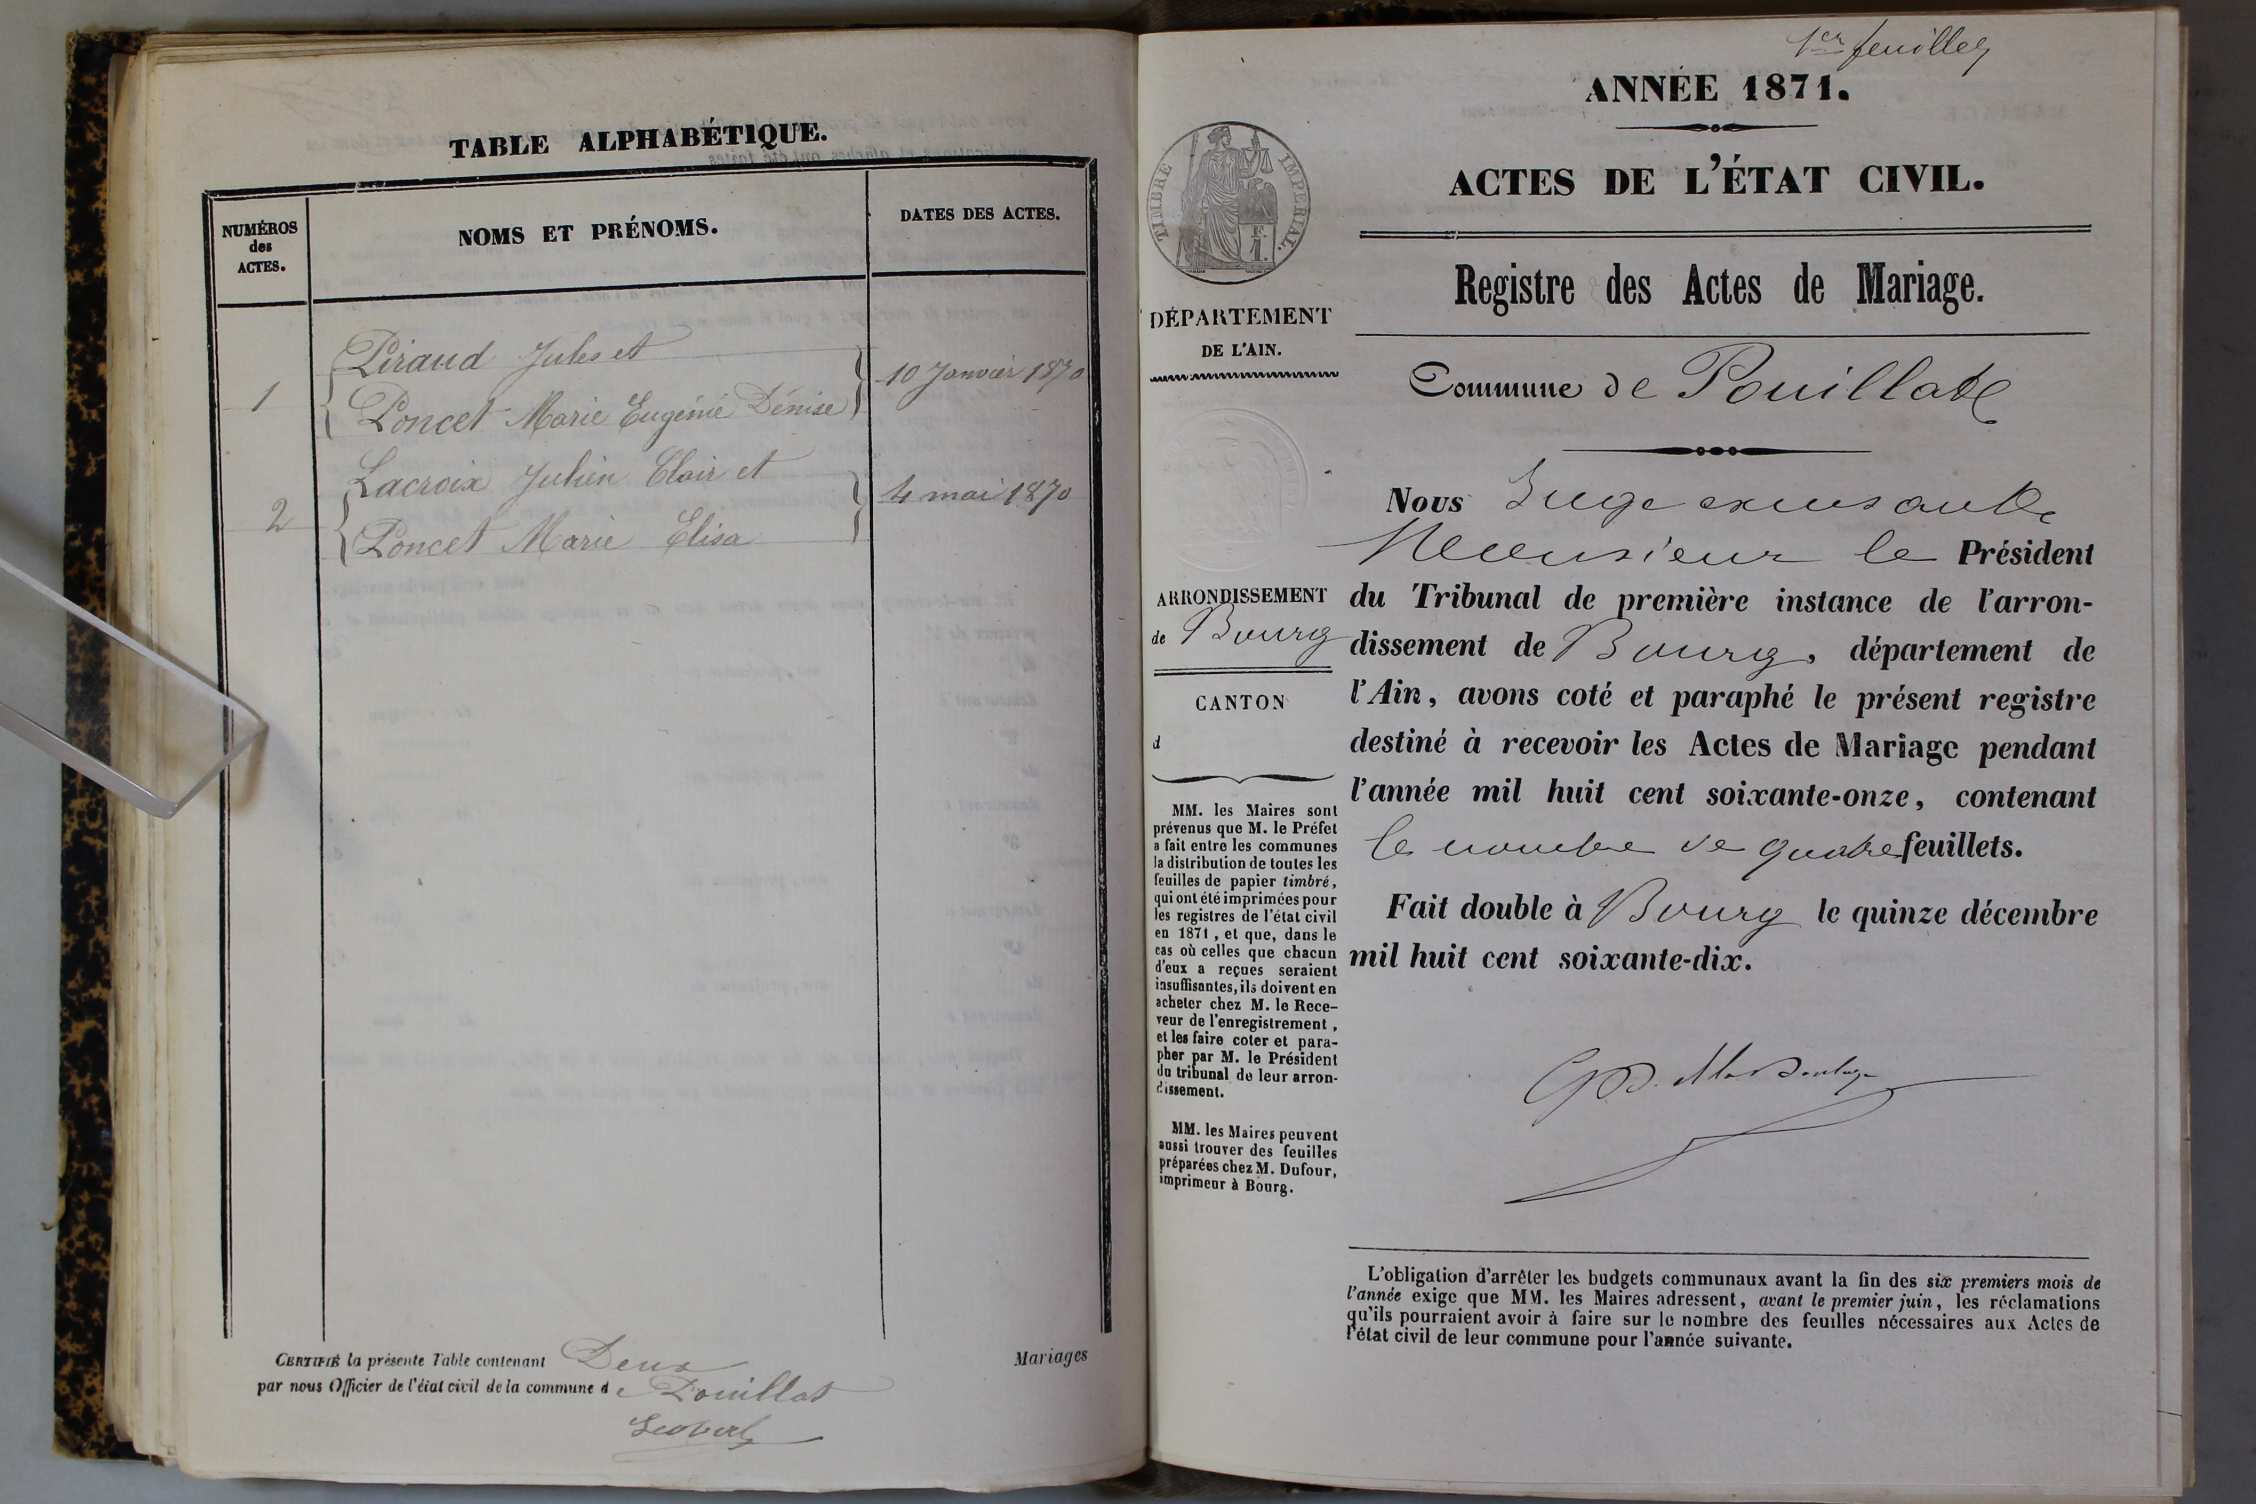 TABLE ALPHABÉTIQUE.
NUMÉROS
des
ACTES.
NOMS ET PRÉNOMS.
DATES DES ACTES.
1
Piraud Jules et
Poncet Marie Eugénie Dénise
10 Janvier 1870
2
Lacroix Julien Clair et
Poncet Marie Elisa
4 mai 1870
CERTIFIÉ la présente Table contenant Deux Mariages
par nous Officier de l'état civil de la commune de Pouillat
1er feuillet
ANNÉE 1871.
ACTES DE L'ÉTAT CIVIL.
Registre des Actes de Mariage.
Commune de Pouillat
TIMBRE IMPERIAL.
F.
1.
DÉPARTEMENT
DE L'AIN.
ARRONDISSEMENT
de Bourg
CANTON
d
MM. les Maires sont
prévenus que M. le Préfet
a fait entre les communes
la distribution de toutes les
feuilles de papier timbré,
qui ont été imprimées pour
les registres de l'état civil
en 1871, et que, dans le
cas où celles que chacun
d'eux a reçues seraient
insuffisantes, ils doivent en
acheter chez M. le Rece-
veur de l'enregistrement,
et les faire coter et para-
pher par M. le Président
du tribunal de leur arron-
dissement.
MM. les Maires peuvent
aussi trouver des feuilles
préparées chez M. Dufour,
imprimeur à Bourg.
Nous Juge
Monsieur le Président
du Tribunal de première instance de l'arron-
dissement de Bourg, département de
l'Ain, avons coté et paraphé le présent registre
destiné à recevoir les Actes de Mariage pendant
l'année mil huit cent soixante-onze, contenant
le nombre de quatre feuillets.
Fait double à Bourg le quinze décembre
mil huit cent soixante-dix.
L'obligation d'arrêter les budgets communaux avant la fin des six premiers mois de
l'année exige que MM. les Maires adressent, avant le premier juin, les réclamations
qu'ils pourraient avoir à faire sur le nombre des feuilles nécessaires aux Actes de
l'état civil de leur commune pour l'année suivante.